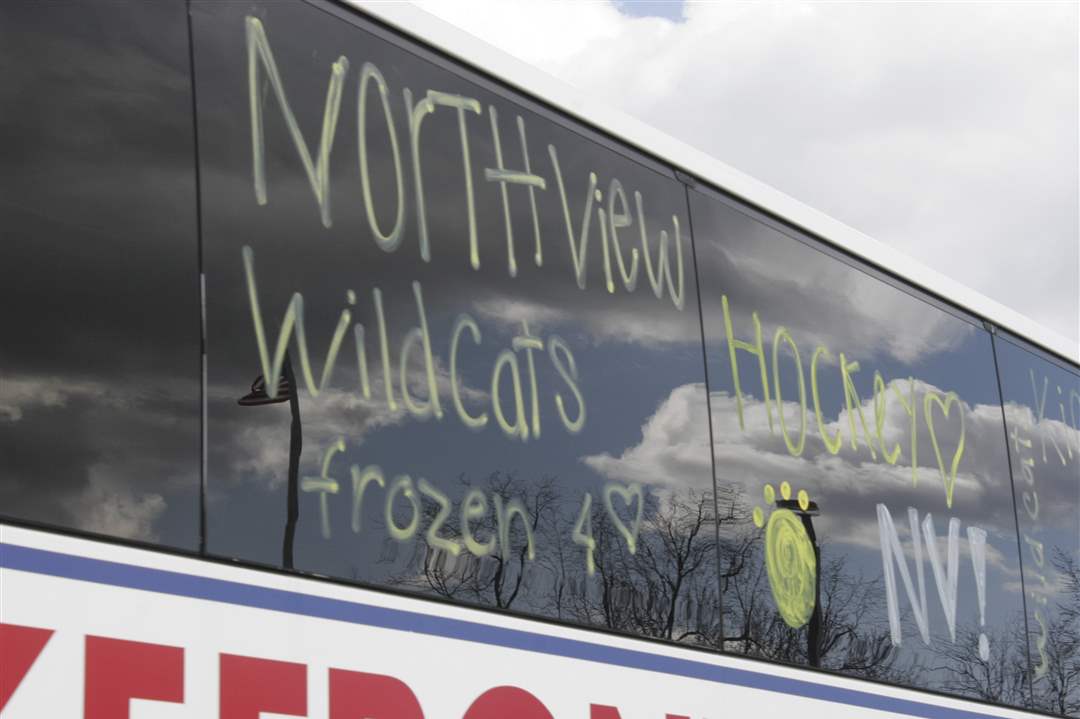 NorTHView
wildcats
frozen 4 ♡
Hockey ♡
NV!
wildcat